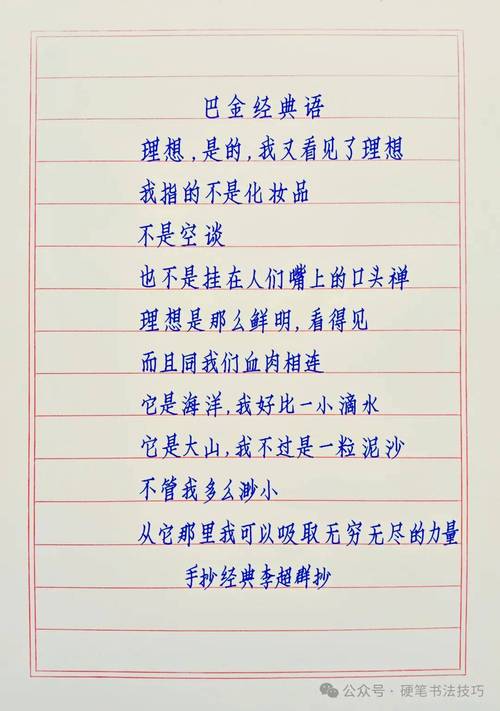 巴金经典语
理想，是的，我又看见了理想
我指的不是化妆品
不是空谈
也不是挂在人们嘴上的口头禅
理想是那么鲜明，看得见
而且同我们血肉相连
它是海洋，我好比一小滴水
它是大山，我不过是一粒泥沙
不管我多么渺小
从它那里我可以吸取无穷无尽的力量
手抄经典李超群抄
公众号·硬笔书法技巧